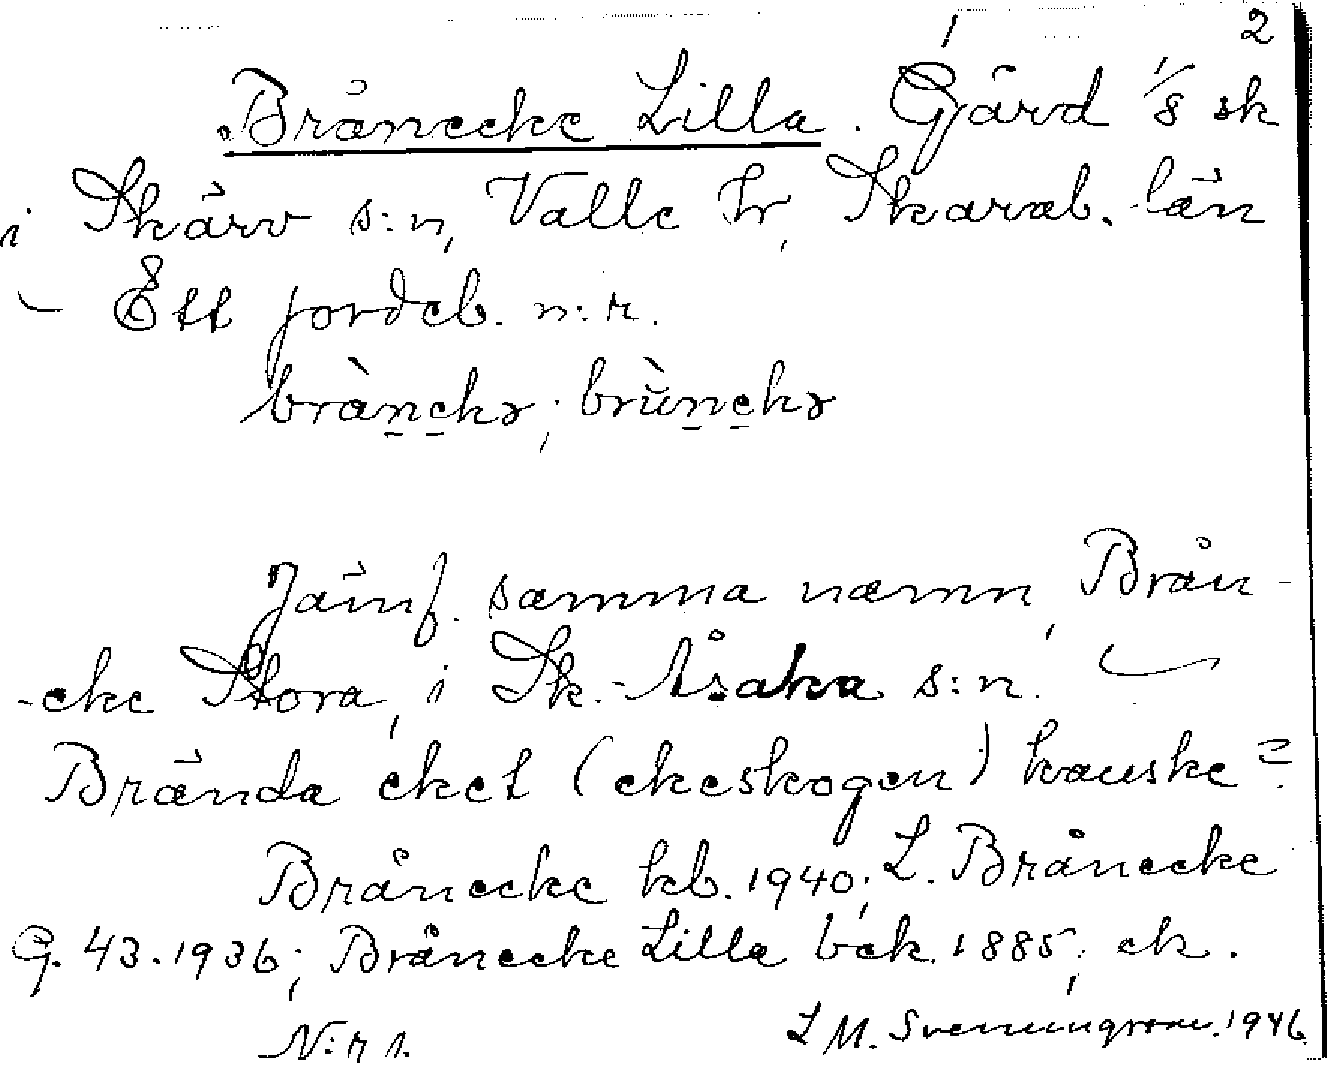 2
Brånecke Lilla. Gård 1/8 sk
i Skärv s:n, Valle hr, Skarab. län
Ett jordeb. n:r.
Jämf. samma namn, Brån-
-eke Stora, i Sk.-Åsaka s:n.
Brända eket (ekeskogen) kanske?
Brånecke kb. 1940; L. Brånecke
G. 43. 1936; Brånecke Lilla bäk. 1885; ek.
N:r 1. L M. Svenungsson. 1946